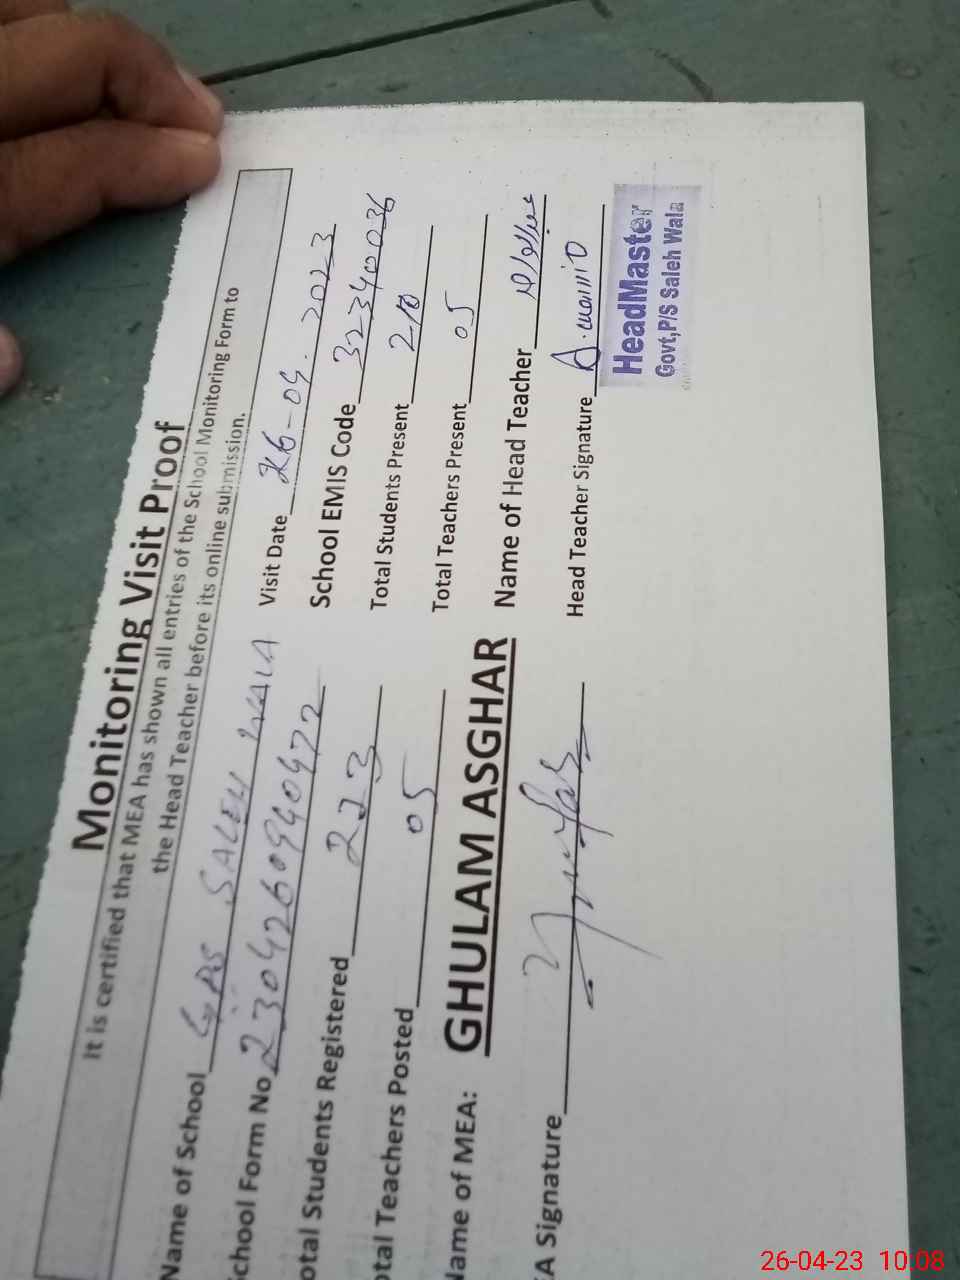 Monitoring Visit Proof
It is certified that MEA has shown all entries of the School Monitoring Form to
the Head Teacher before its online submission.
Name of School GPS SALEH WALA Visit Date 26-04-2023
School Form No School EMIS Code 32340036
otal Students Registered 223 Total Students Present 210
otal Teachers Posted 05 Total Teachers Present 05
Name of MEA: GHULAM ASGHAR Name of Head Teacher
EA Signature Head Teacher Signature
HeadMaster
Govt,P/S Saleh Wala
26-04-23 10:08